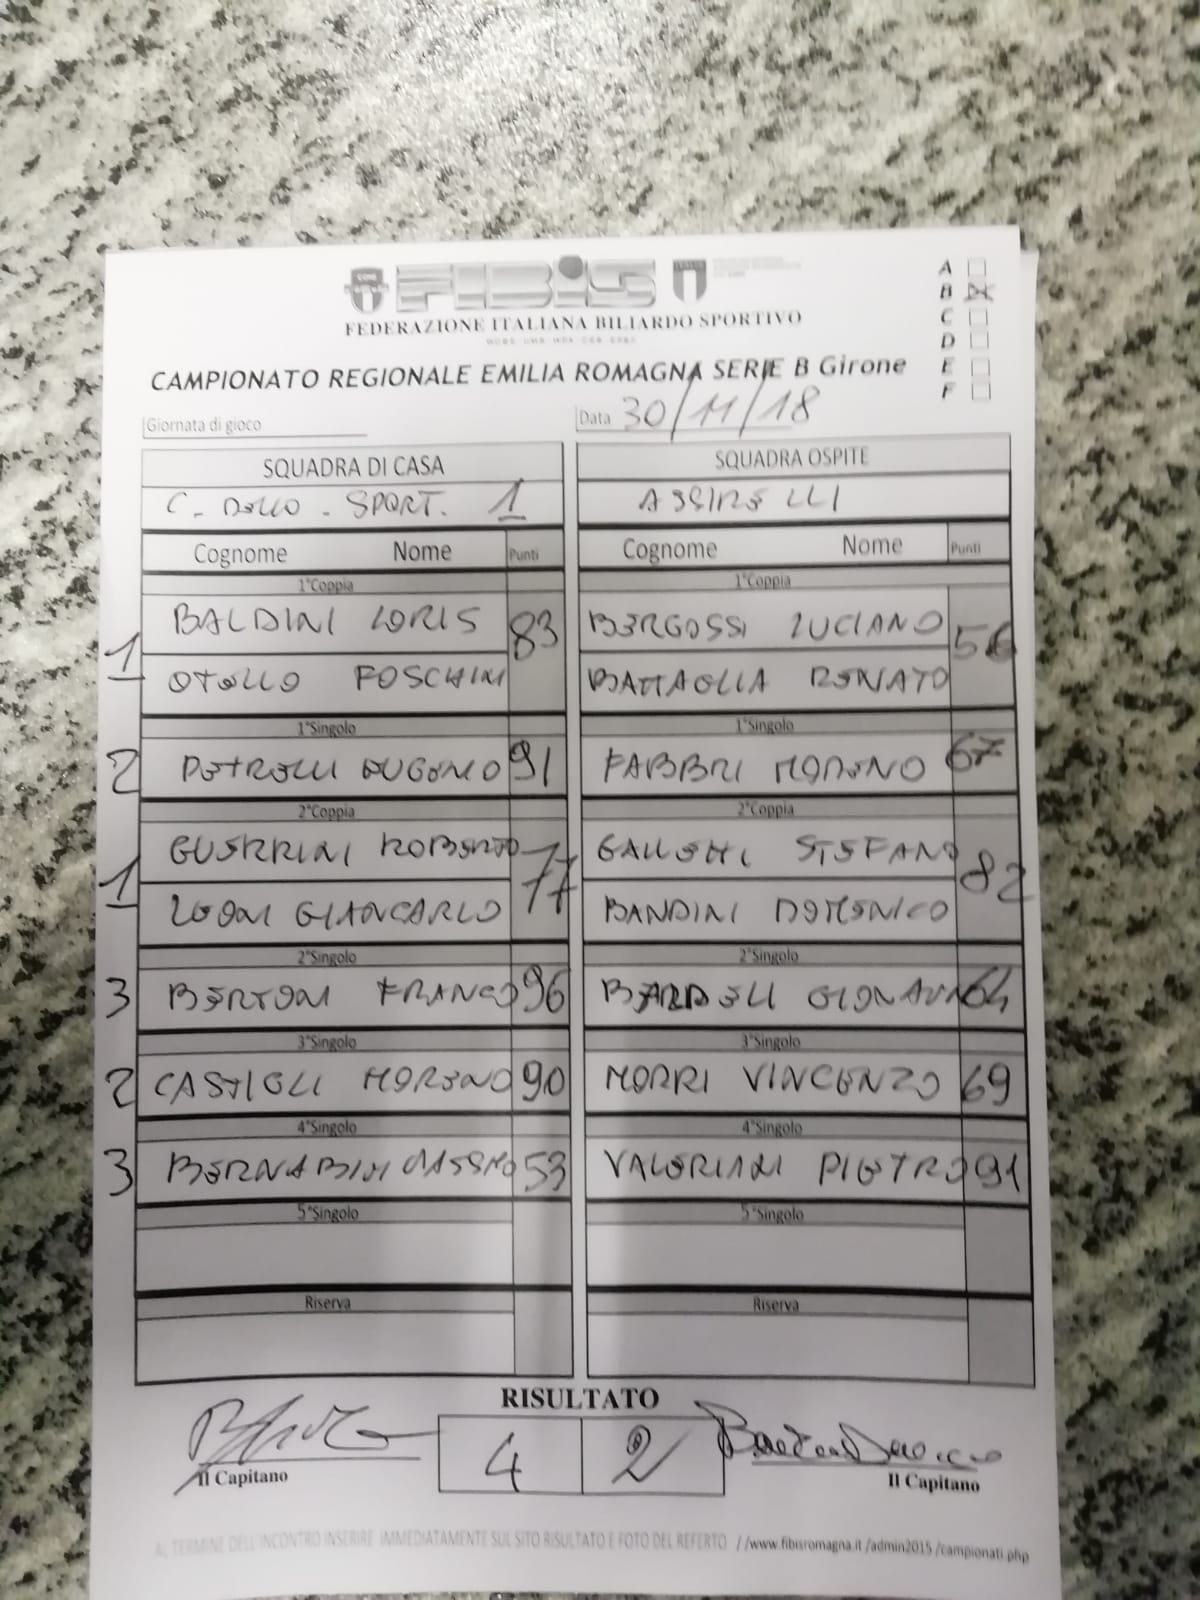 FIBiS
FEDERAZIONE ITALIANA BILIARDO SPORTIVO
A
B
C
D
E
F
CAMPIONATO REGIONALE EMILIA ROMAGNA SERIE B Girone
Giornata di gioco
Data 30/11/18
SQUADRA DI CASA SQUADRA OSPITE
C. DELLO SPORT. 1 ASSIRELLI
Cognome Nome Punti Cognome Nome Punti
1°Coppia 1°Coppia
1 BALDINI LORIS 83 BERGOSSI LUCIANO 56
OTELLO FOSCHINI BATTAGLIA RENATO
1°Singolo 1°Singolo
2 PETRELLI EUGENIO 91 FABBRI MORENO 67
2°Coppia 2°Coppia
1 GUERRINI ROBERTO 77 GALEGHI STEFANO 82
LEONI GIANCARLO BANDINI DOMENICO
2°Singolo 2°Singolo
3 BERTONI FRANCO 96 64
3°Singolo 3°Singolo
2 CASTIGLI MORENO 90 MORRI VINCENZO 69
4°Singolo 4°Singolo
3 BERNABINI MASSMO 53 VALERIANI PIETRO 91
5°Singolo 5°Singolo
Riserva Riserva
RISULTATO
4 2
Il Capitano Il Capitano
AL TERMINE DELL'INCONTRO INSERIRE IMMEDIATAMENTE SUL SITO RISULTATO E FOTO DEL REFERTO //www.fibisromagna.it /admin2015 /campionati.php